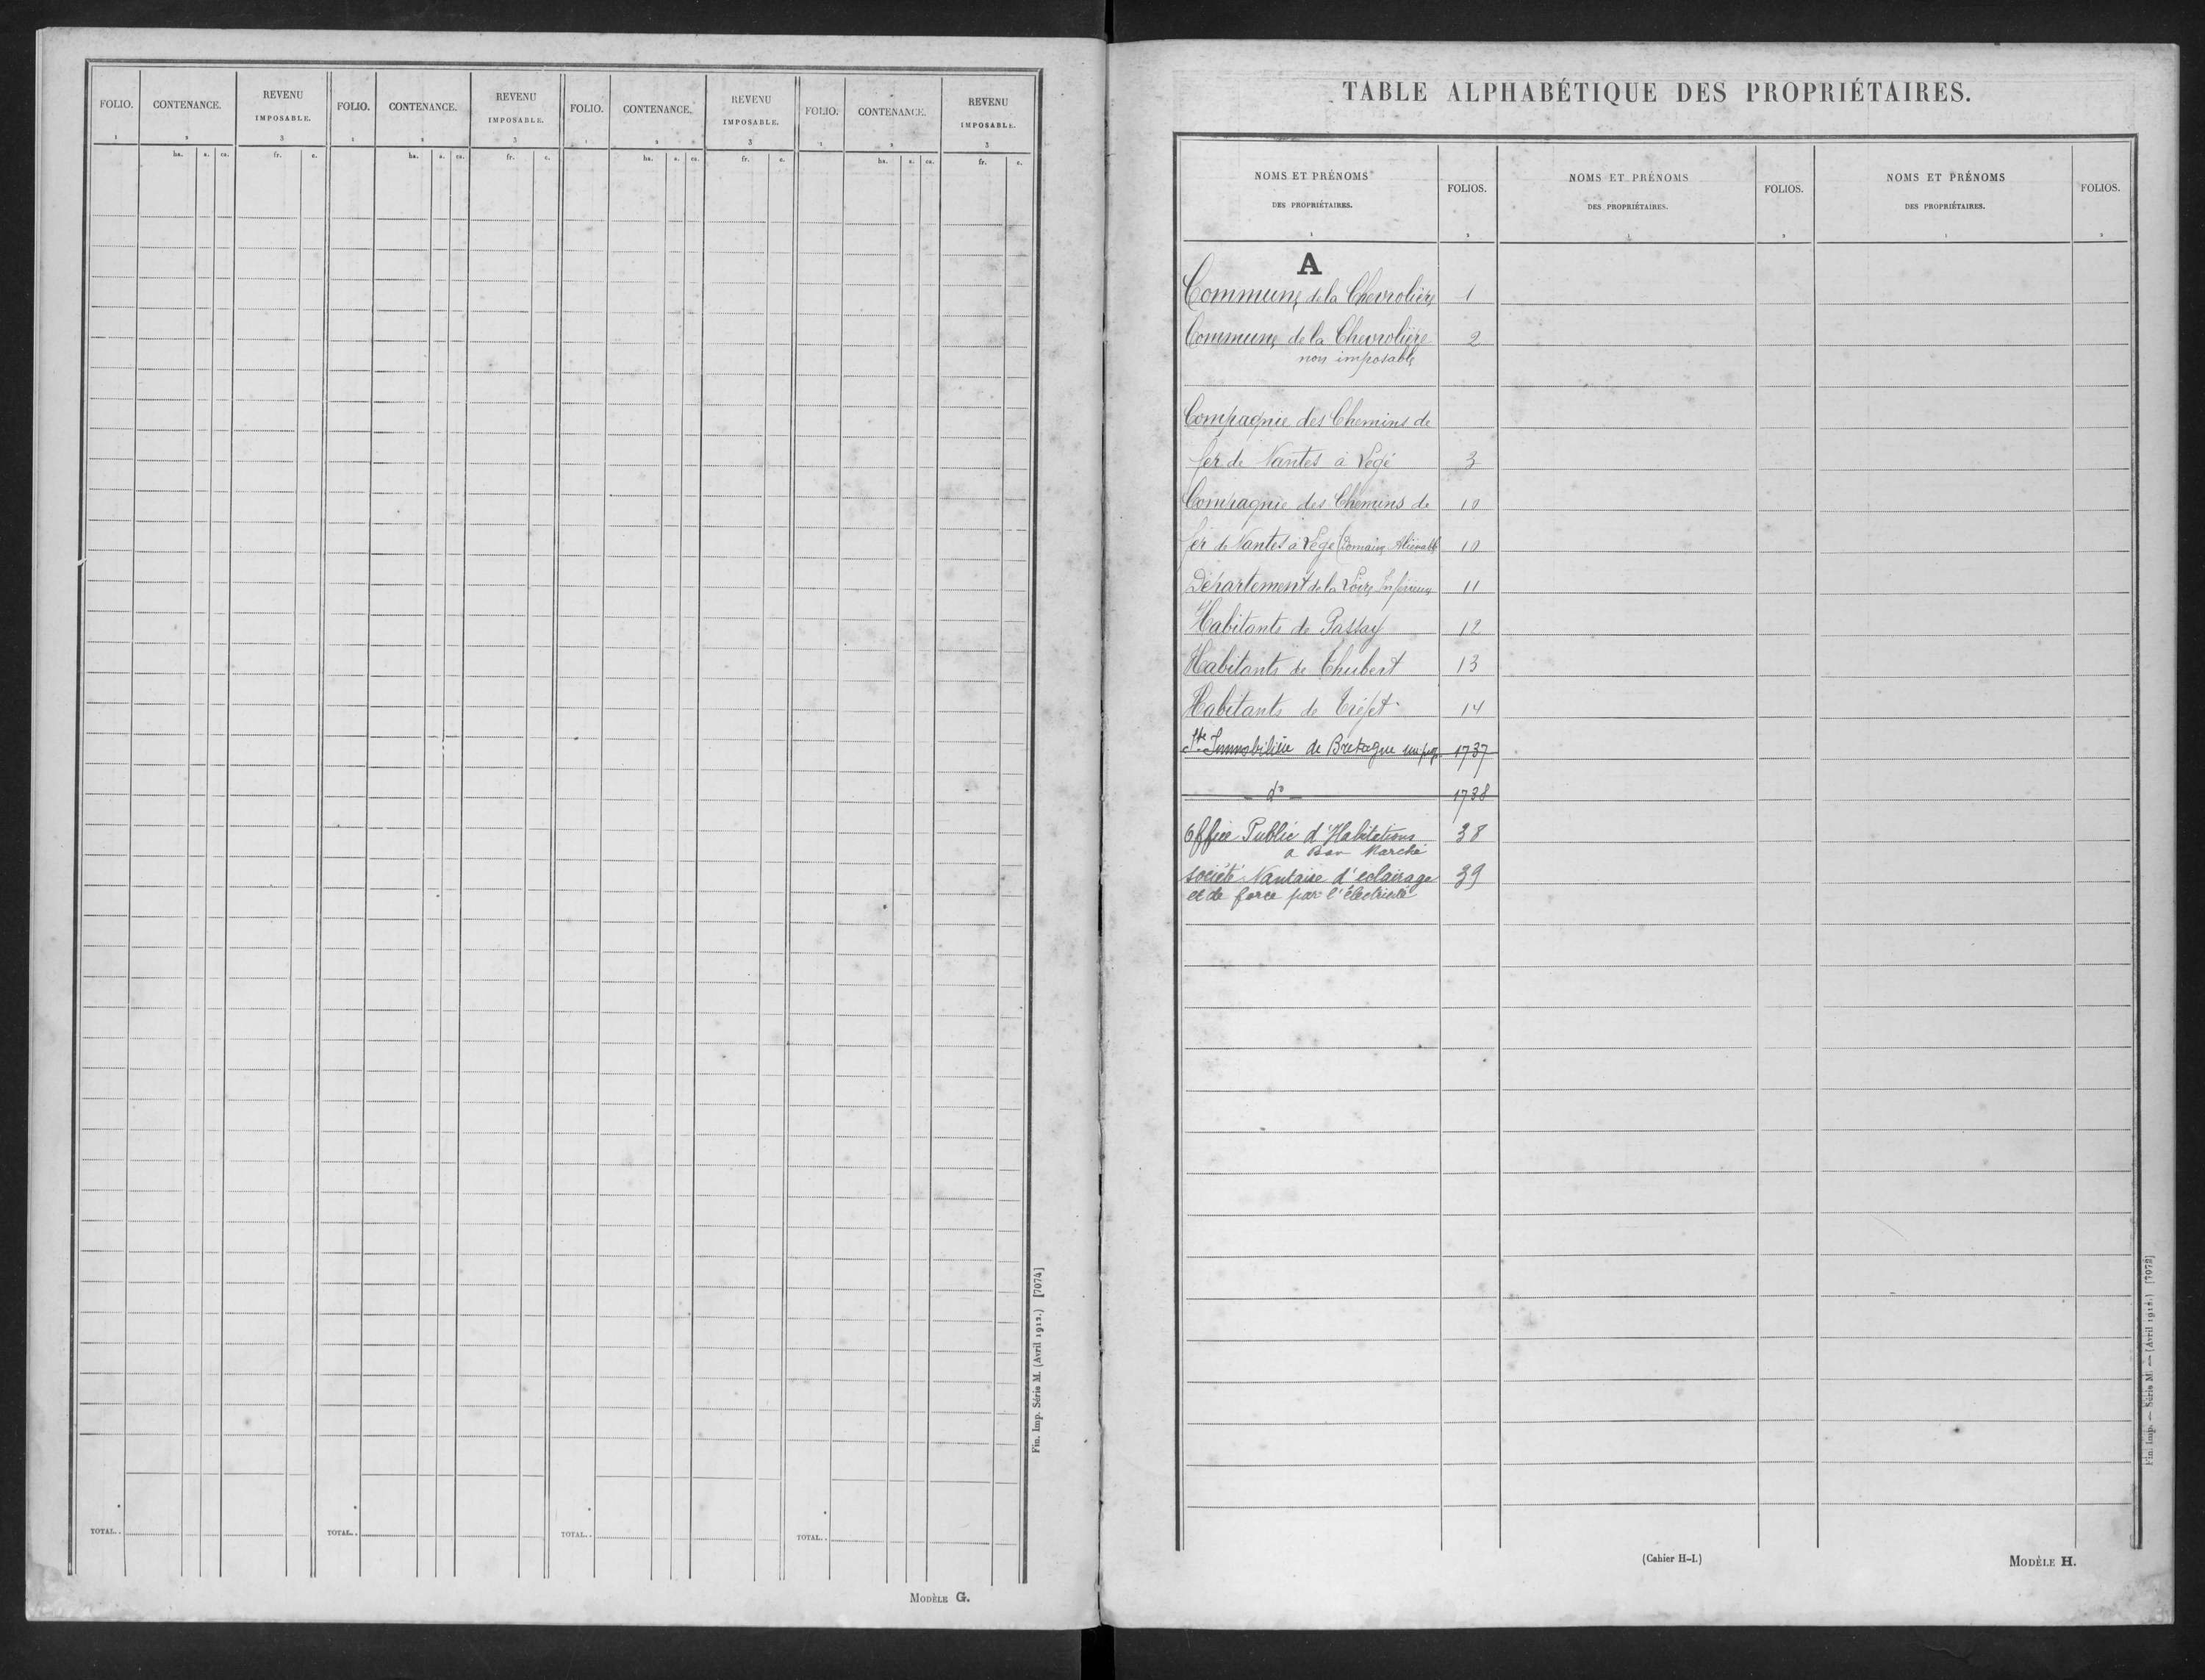 FOLIO. CONTENANCE. REVENU IMPOSABLE. FOLIO. CONTENANCE. REVENU IMPOSABLE. FOLIO. CONTENANCE. REVENU IMPOSABLE. FOLIO. CONTENANCE. REVENU IMPOSABLE.
1 2 3 1 2 3 1 2 3 1 2 3
ha. a. ca. fr. c. ha. a. ca. fr. c. ha. a. ca. fr. c. ha. a. ca. fr. c.
TOTAL.. TOTAL.. TOTAL.. TOTAL..
Fin. Imp. Série M. (Avril 1912.) [7074]
MODÈLE G.
TABLE ALPHABÉTIQUE DES PROPRIÉTAIRES.
NOMS ET PRÉNOMS DES PROPRIÉTAIRES. FOLIOS. NOMS ET PRÉNOMS DES PROPRIÉTAIRES. FOLIOS. NOMS ET PRÉNOMS DES PROPRIÉTAIRES. FOLIOS.
1 2 1 2 1 2
A
Commune de la Chevrolière 1
Commune de la Chevrolière 2
non imposable
Compagnie des Chemins de
fer de Nantes à Legé 3
Compagnie des Chemins de 10
fer de Nantes à Legé (Domaine Aliénable 10
Département de la Loire Inférieure 11
Habitants de Passay 12
Habitants de Thubert 13
Habitants de Tréjet 14
Sté Immobilière de Bretagne 1737
- do - 1738
Office Public d'Habitations 38
a Bon Marché
Société Nantaise d'eclairage 39
et de force par l'électricité
(Cahier H-I.)
MODÈLE H.
Fin. Imp. — Série M. — (Avril 1912.)